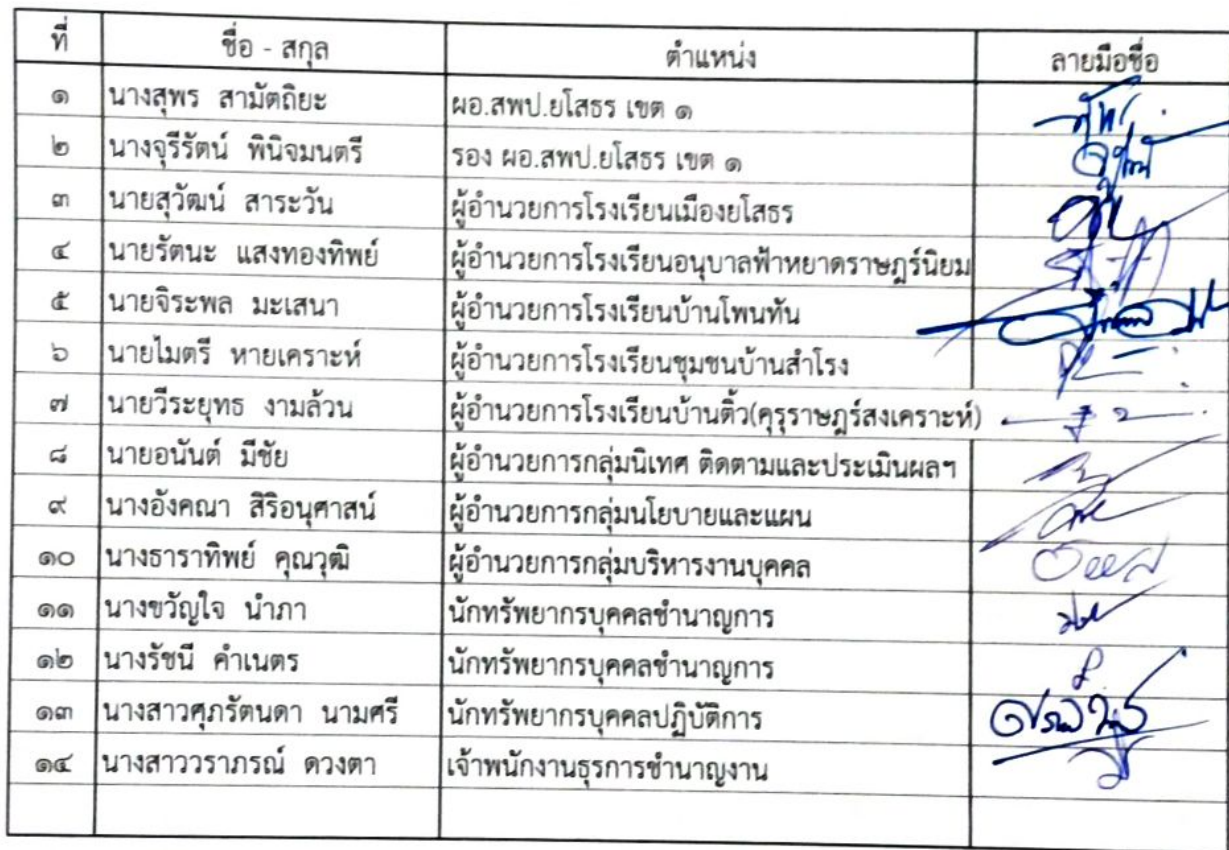 ที่ ชื่อ - สกุล ตำแหน่ง ลายมือชื่อ
๑ นางสุพร สามัตถิยะ ผอ.สพป.ยโสธร เขต ๑
๒ นางจุรีรัตน์ พินิจมนตรี รอง ผอ.สพป.ยโสธร เขต ๑
๓ นายสุวัฒน์ สาระวัน ผู้อำนวยการโรงเรียนเมืองยโสธร
๔ นายรัตนะ แสงทองทิพย์ ผู้อำนวยการโรงเรียนอนุบาลฟ้าหยาดราษฎร์นิยม
๕ นายจิระพล มะเสนา ผู้อำนวยการโรงเรียนบ้านโพนทัน
๖ นายไมตรี หายเคราะห์ ผู้อำนวยการโรงเรียนชุมชนบ้านสำโรง
๗ นายวีระยุทธ งามล้วน ผู้อำนวยการโรงเรียนบ้านติ้ว(คุรุราษฎร์สงเคราะห์)
๘ นายอนันต์ มีชัย ผู้อำนวยการกลุ่มนิเทศ ติดตามและประเมินผลฯ
๙ นางอังคณา สิริอนุศาสน์ ผู้อำนวยการกลุ่มนโยบายและแผน
๑๐ นางธาราทิพย์ คุณวุฒิ ผู้อำนวยการกลุ่มบริหารงานบุคคล
๑๑ นางขวัญใจ นำภา นักทรัพยากรบุคคลชำนาญการ
๑๒ นางรัชนี คำเนตร นักทรัพยากรบุคคลชำนาญการ
๑๓ นางสาวศุภรัตนดา นามศรี นักทรัพยากรบุคคลปฏิบัติการ
๑๔ นางสาววราภรณ์ ดวงตา เจ้าพนักงานธุรการชำนาญงาน